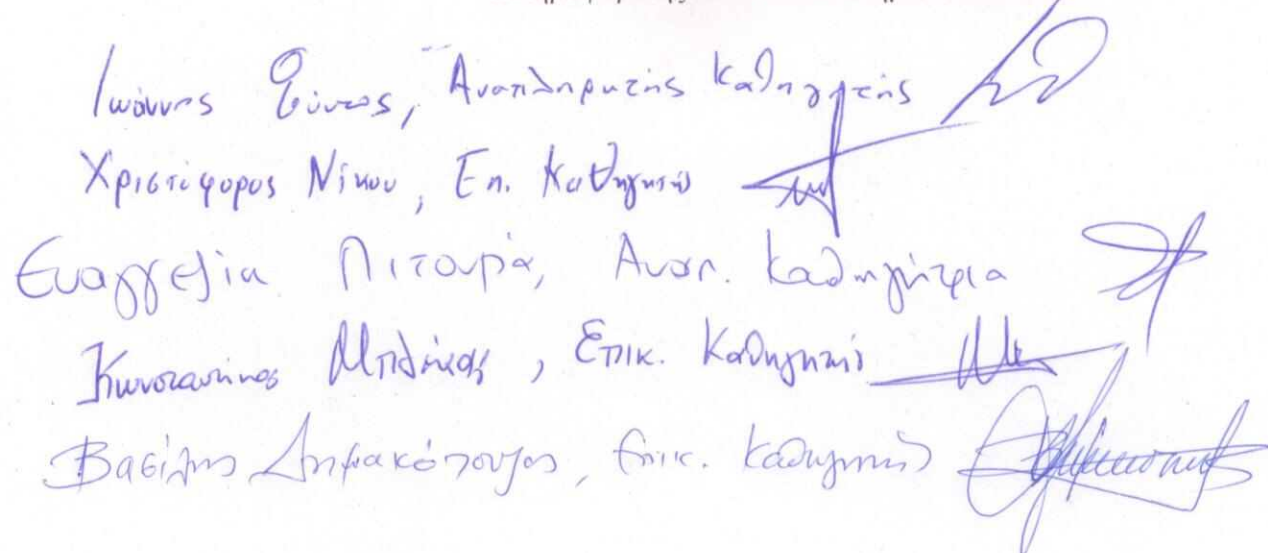 Ιωάννης Φούντος, Αναπληρωτής Καθηγητής
Χριστόφορος Νίκου, Επ. Καθηγητής
Ευαγγελία Πιτουρά, Αναπ. Καθηγήτρια
Κωνσταντίνος Μπλέκας, Επικ. Καθηγητής
Βασίλης Δημακόπουλος, Επικ. Καθηγητής